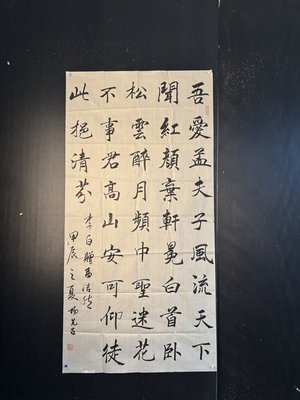 吾愛孟夫子風流天下
聞紅顏棄軒冕白首臥
松雲醉月頻中聖迷花
不事君高山安可仰徒
此挹清芬
李白贈孟浩然
甲辰之夏